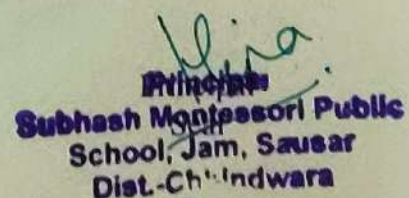 Principal
Subhash Montessori Public
School, Jam, Sausar
Dist.-Chhindwara